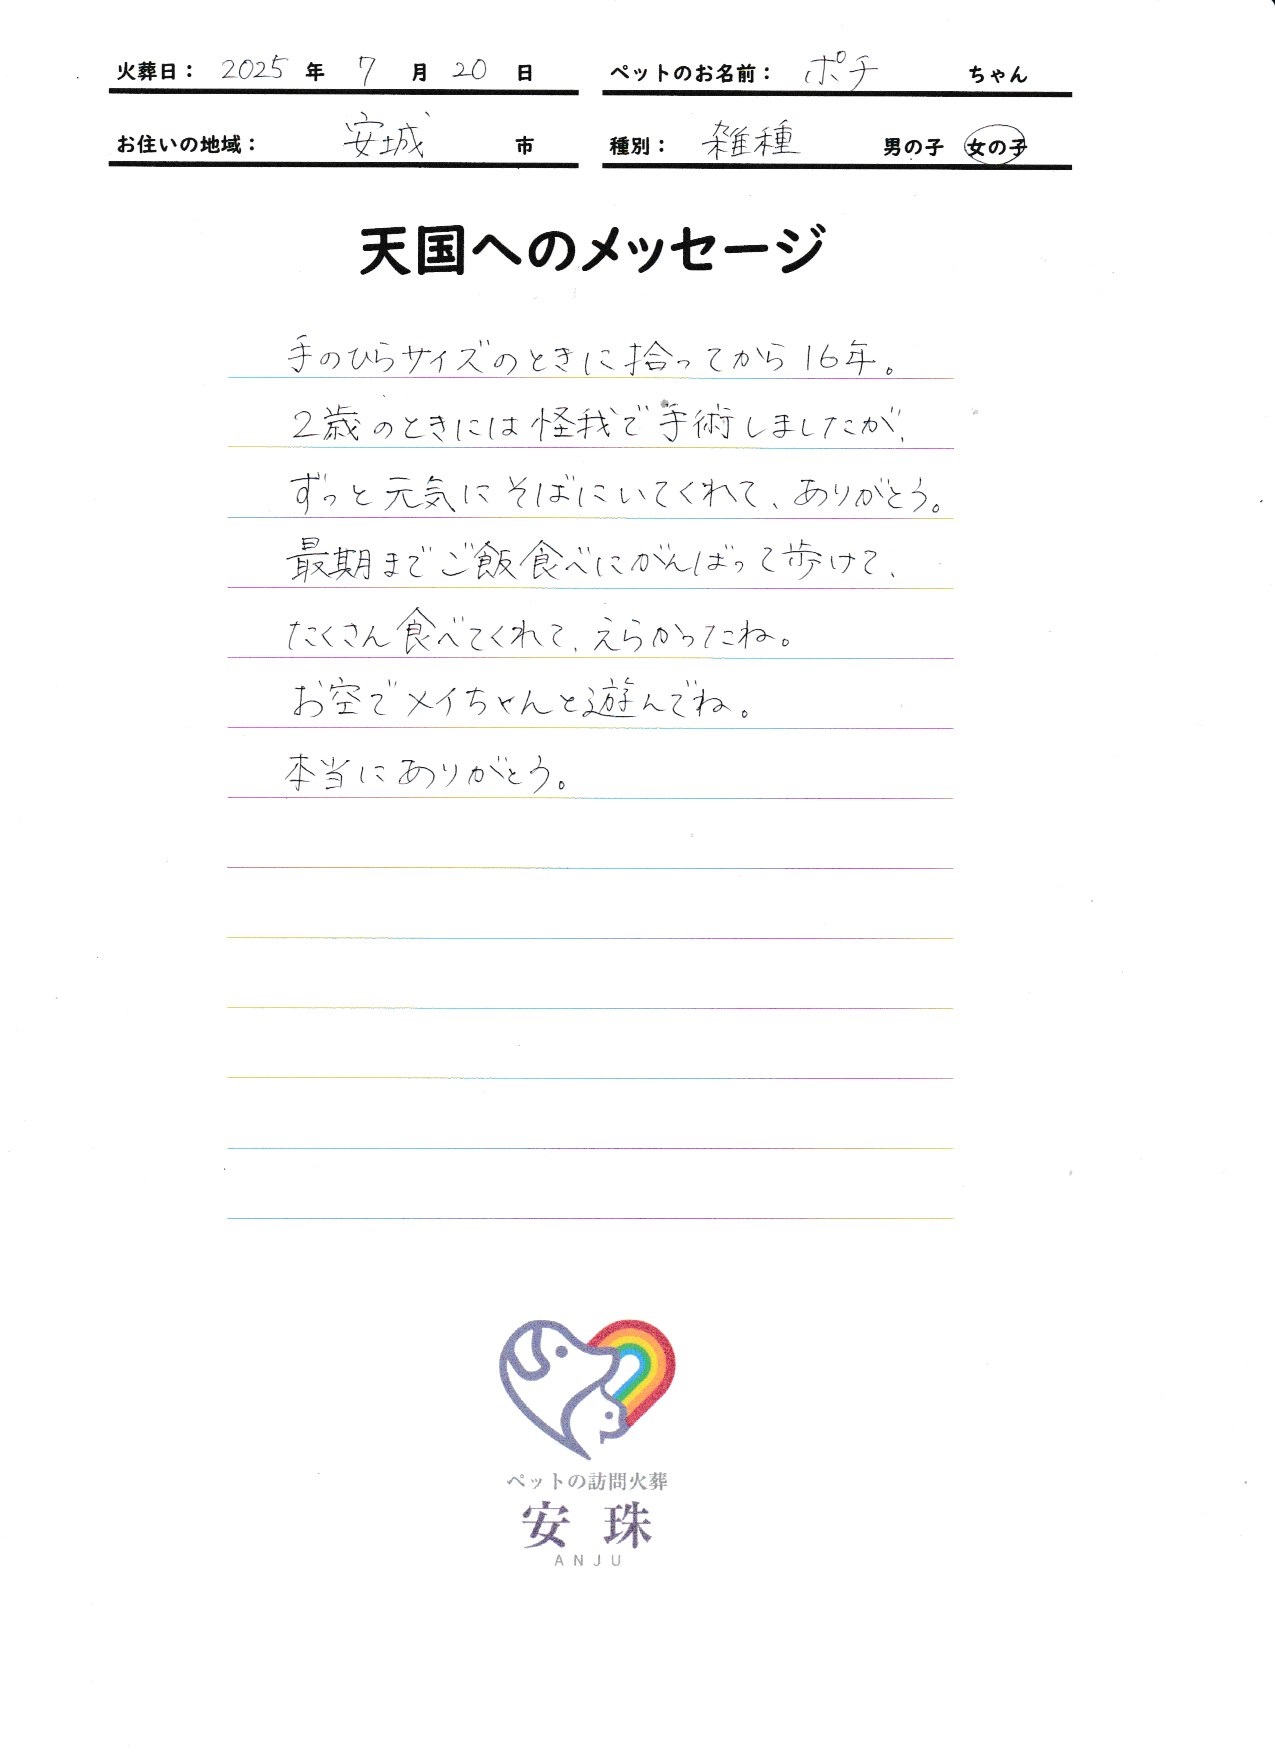 火葬日： 2025 年 7 月 20 日 ペットのお名前： ポチ ちゃん
お住いの地域： 安城 市 種別： 雑種 男の子 女の子
天国へのメッセージ
手のひらサイズのときに拾ってから16年。
2歳のときには怪我で手術しましたが、
ずっと元気にそばにいてくれて、ありがとう。
最期までご飯食べにがんばって歩けて、
たくさん食べてくれて、えらかったね。
お空でメイちゃんと遊んでね。
本当にありがとう。
ペットの訪問火葬
安珠
ANJU